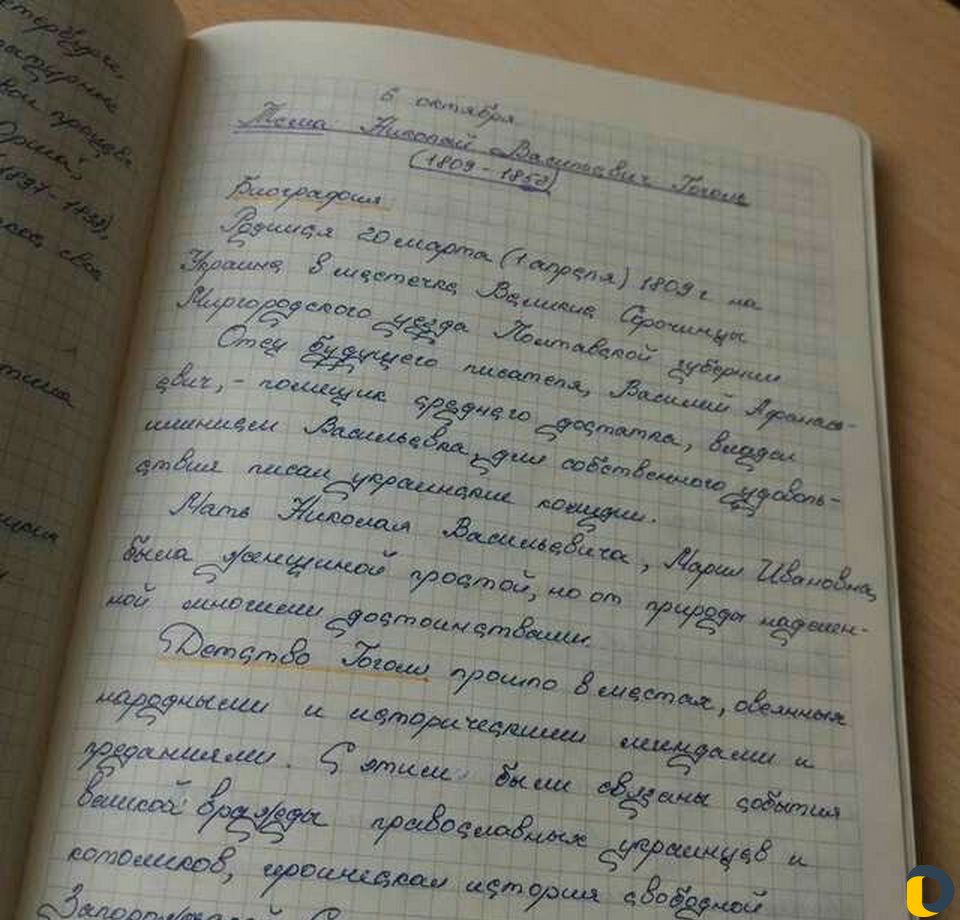 тербурге,
Орша,
(1897-1898),
6 октября
Тема: Николай Васильевич Гоголь
(1809 - 1852)
Биография
Родился 20 марта (1 апреля) 1809 г. на
Украине в местечке Великие Сорочинцы
Миргородского уезда Полтавской губернии
Отец будущего писателя, Василий Афанась-
евич, - помещик среднего достатка, владел
имением Васильевка, для собственного удоволь-
ствия писал украинские комедии.
Мать Николая Васильевича, Мария Ивановна,
была женщиной простой, но от природы наделен-
ной многими достоинствами.
Детство Гоголя прошло в местах, овеянных
народными и историческими легендами и
преданиями. С этим были связаны события
великой вражды православных украинцев и
католиков, героическая история свободной
Запорожской С